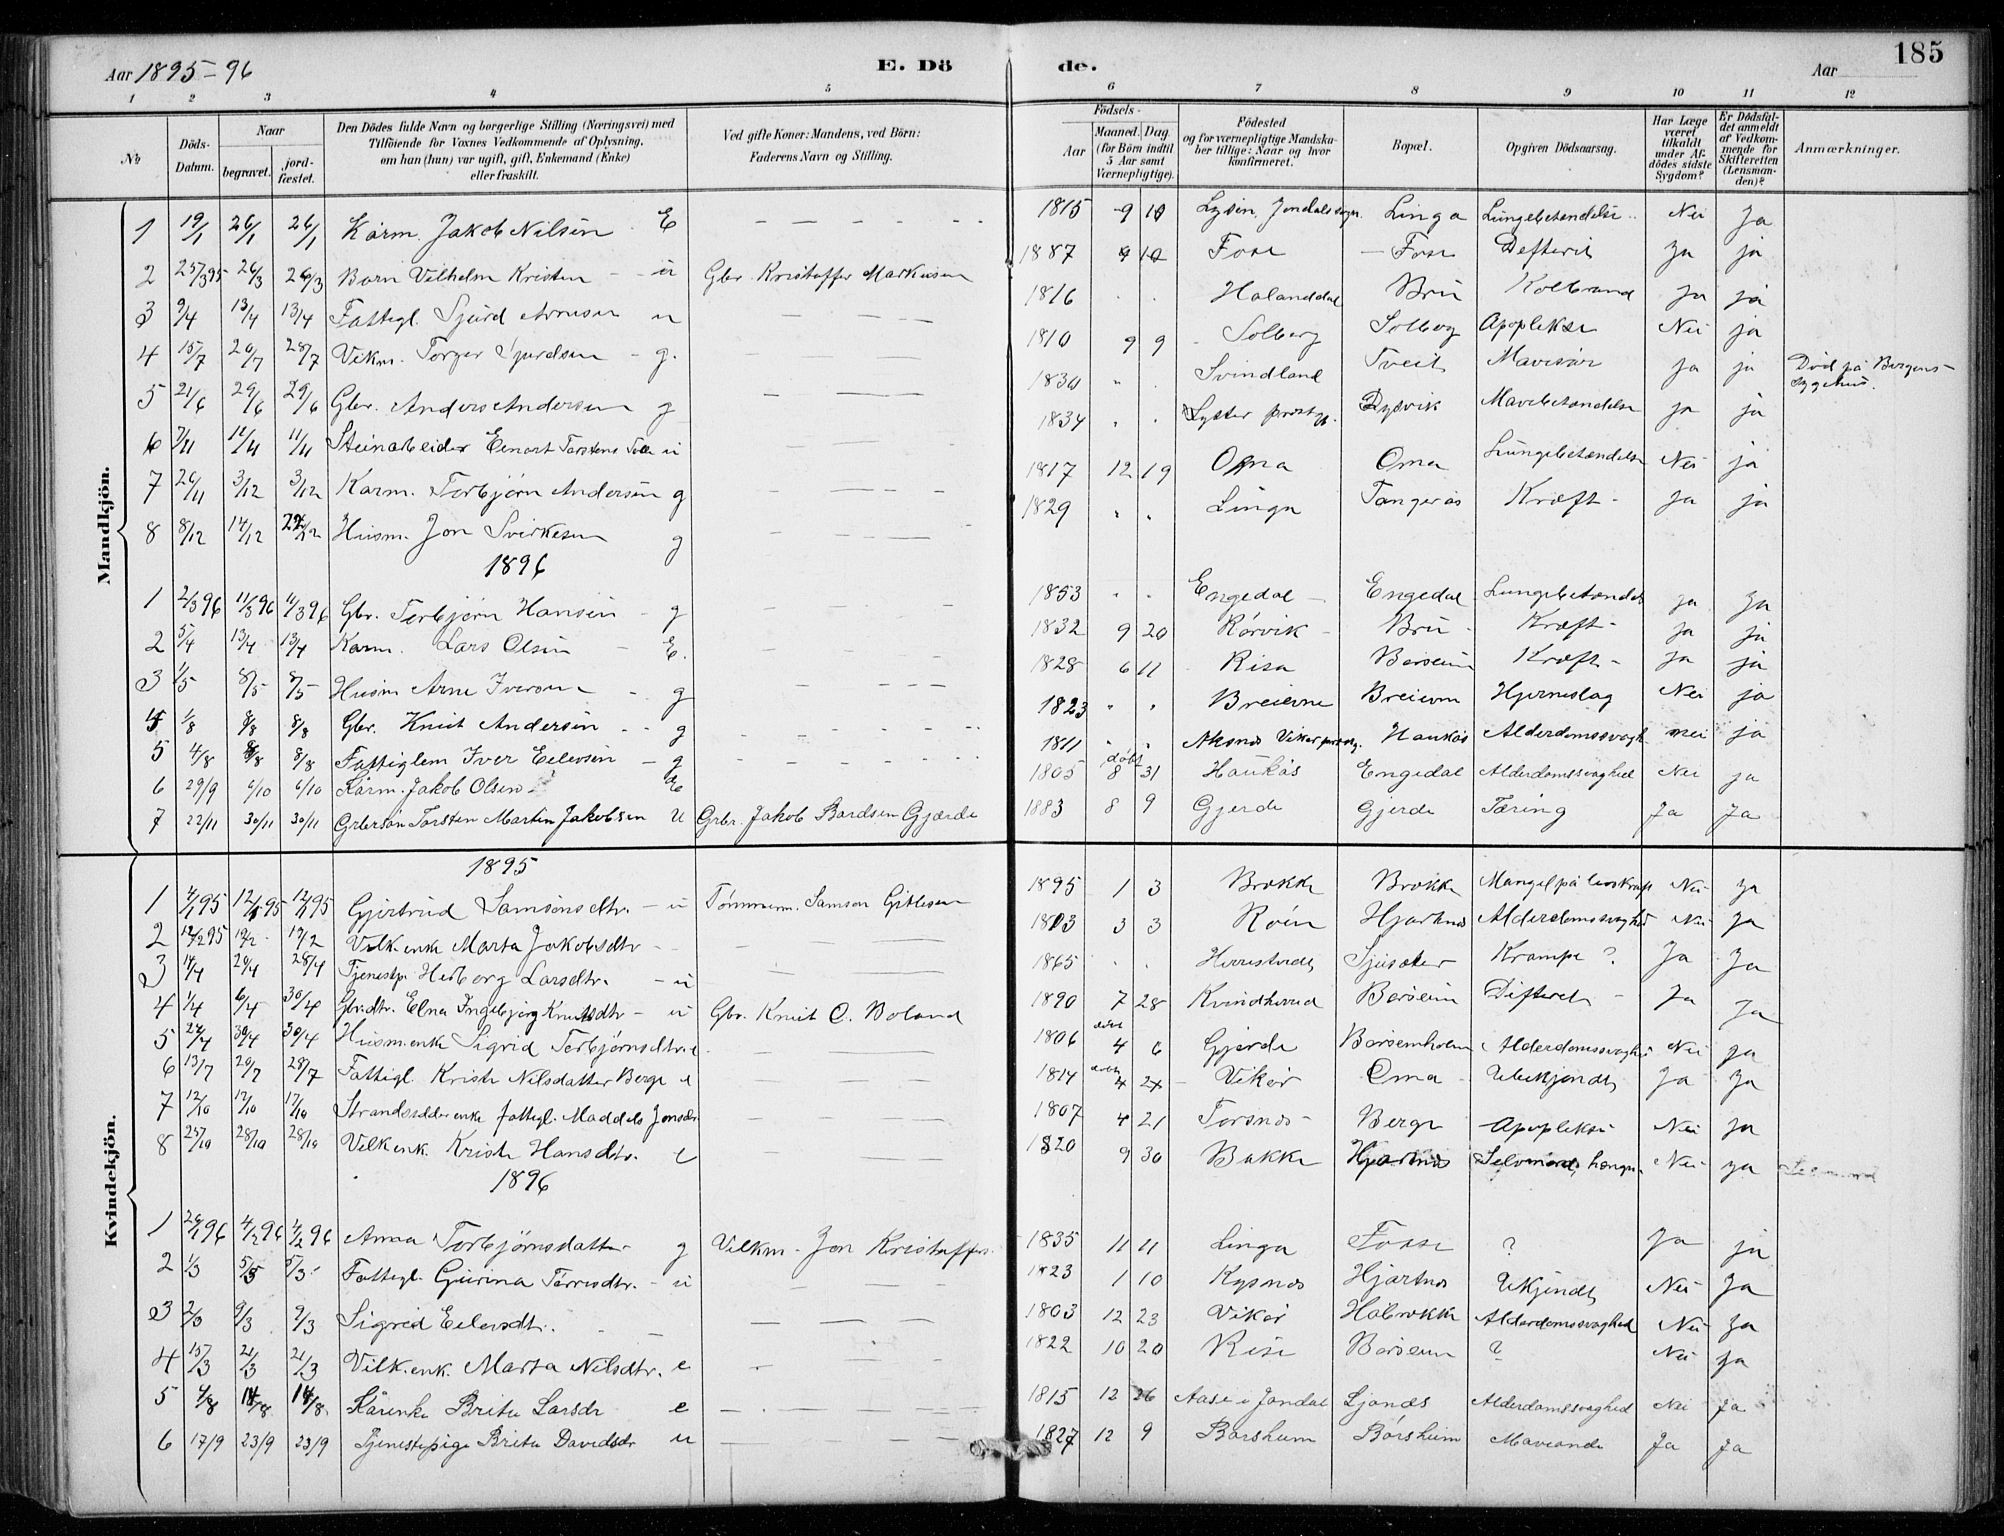 Aar 1895-96 E. Dö de. Aar 185
1 2 3 4 5 6 7 8 9 10 11 12
No Döds-Datum. Naar begravet. jordfæstet. Den Dödes fulde Navn og borgerlige Stilling (Næringsvei) med Tilföiende for Voxnes Vedkommende af Oplysning, om han (hun) var ugift, gift, Enkemand (Enke) eller fraskilt. Ved gifte Koner: Mandens, ved Börn: Faderens Navn og Stilling. Födsels- Aar Maaned. Dag. (for Börn indtil 5 Aar samt Værnepligtige). Födested og for værnepligtige Mandskaber tillige: Naar og hvor konfirmeret. Bopæl. Opgiven Dödsaarsag. Har Læge været tilkaldt under Afdödes sidste Sygdom? Er Dödsfaldet anmeldt af Vedkommende for Skifteretten (Lensmanden)? Anmærkninger.
Mandkjön.
1 19/1 26/1 26/1 Kårm. Jakob Nilsen E 1815 9 10 Lysen, Jondals Linga Lungebetændelse Nei Ja
2 25/3 95 26/3 26/3 Barn Vilhelm Kristen u Gbr. Kristoffer Markusen 1887 Fosse Fosse Defterit Ja ja
3 9/4 13/4 13/4 Fattigl. Sjurd Arnesen u 1816 Holanddal Bru Kolbrand Ja ja
4 15/7 20/7 28/7 Vikm. Torger Sjurdsen g. 1810 9 9 Solberg Solberg Apopleksi Nei ja
5 21/6 29/6 29/6 Gbr. Anders Andersen g Svindland Tveit Mavesår ja ja Död på Bergens sygehus.
6 7/11 11/11 11/11 Steinarbeider Einart Torstens u 1834 Lyster prestgj. Dysvik Mavebetændelse ja ja
7 26/11 3/12 3/12 Karm. Torbjørn Andersen g 1817 12 19 Oma Oma Lungebetændelse Nei ja
8 8/12 14/12 Husm. Jon Sverkesen g 1829 Linga Tangerås Kræft ja ja
1896
1 2/3 96 11/3 96 11/3 96 Gbr. Torbjørn Hansen g 1853 Engedal Engedal Lungebetændel ja Ja
2 5/4 13/4 13/4 Karm. Lars Olsen E. 1832 9 20 Rørvik Bru Kræft ja ja
3 1/5 8/5 8/5 Husm Arne Iversen g 1828 6 11 Risa Børseim Kræft ja ja
4 1/8 8/8 8/8 Gbr. Knut Andersen g 1823 Breievne Breievne Hjerneslag Nei ja
5 4/8 8/8 8/8 Fattiglem Iver Eilevsen g 1811 Aksnes Vikør prestg. Haukås Alderdomssvagh nei ja
6 29/9 6/10 6/10 Kårm. Jakob Olsen 1805 døbt 8 31 Haukås Engedal Alderdomssvaghed Nei ja
7 22/11 30/11 30/11 Grbersön Torsten Martin Jakobsen U Grbr. Jakob Bardsen Gjærde 1883 8 9 Gjerde Gjerde Tæring Ja Ja
Kvindekjön.
1895
1 4/1 95 12/1 95 12/1 95 Gjertrud Samsonsdtr. u Tømmerm. Samson Gitlesen 1895 1 3 Brokke Brokke Mangel på livskraft Nei Ja
2 12/2 95 19/2 19/2 Vilk.enke Marta Jakobsdtr 1813 3 3 Røen Hjartnes Alderdomssvaghed Nei Ja
3 14/4 29/4 28/4 Tjenestp. Herborg Larsdtr. u 1865 Herrestveit Sjusæter Krampe? Ja Ja
4 1/4 6/4 30/4 Gbr.dtr. Elna Ingebjørg Knutsdtr u Gbr. Knut O. Boland 1890 7 28 Kvindherred Børseim Difterit Ja Ja
5 24/4 30/4 30/4 Husm.enke Sigrid Torbjørnsdtr. e 1806 4 6 Gjerde Børsemholmen Alderdomssvaghed Nei ja
6 13/7 20/7 28/7 Fattigl. Kriste Nilsdatter Berge e 1814 4 24 Vikør Oma Ubekjendt Ja Ja
7 12/10 17/10 17/10 Strandsidderenke fattigl. Maddele Jonsdtr 1807 4 21 Torsnes Berge Apopleksi Nei Ja
8 25/10 28/10 28/10 Vilk enk. Kriste Hansdtr. e 1820 9 30 Bakke Hjartnes Selvmord, hængn. Nei Ja Selvmord
1896
1 26/1 96 4/2 96 4/2 96 Anna Torbjørnsdatter g Vilkm. Jon Kristoffers. 1835 11 11 Linga Fosse ? Ja ja
2 1/3 5/3 5/3 Fattigl. Gurina Tørresdtr. u 1823 1 10 Kysnes Hjartnes Ukjendt Nei Ja
3 2/3 9/3 9/3 Sigrid Eilevsdtr. 1803 12 23 Vikør Halbrekke Alderdomssvaghed Nei Ja
4 15/3 21/3 21/3 Vilk.enk. Marta Nilsdtr. e 1822 10 20 Rise Børseim ? Nei Ja
5 4/8 14/8 14/8 Kårenke Brita Larsdr e 1815 12 26 Aase i Jondal Ljones Alderdomssvaghed Nei Ja
6 17/9 23/9 23/9 Tjenestepige Brita Davidsdr u 1827 12 9 Børsheim Børsheim Maveonde Ja Ja